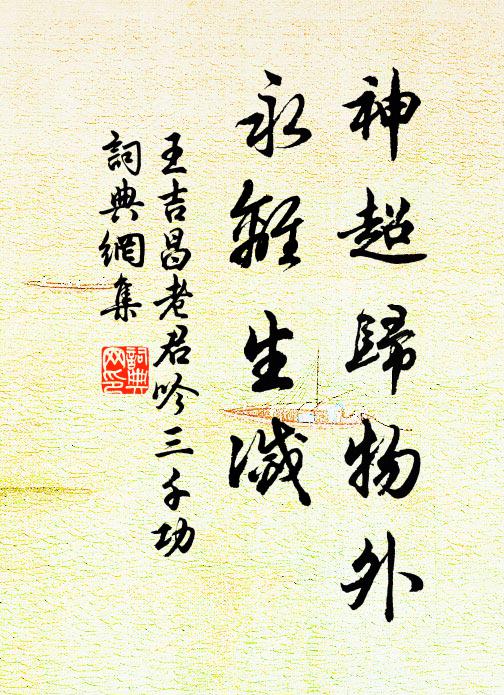 神超歸物外
永離生滅
王吉昌老君吟三千功
詞典網集
詞典網印